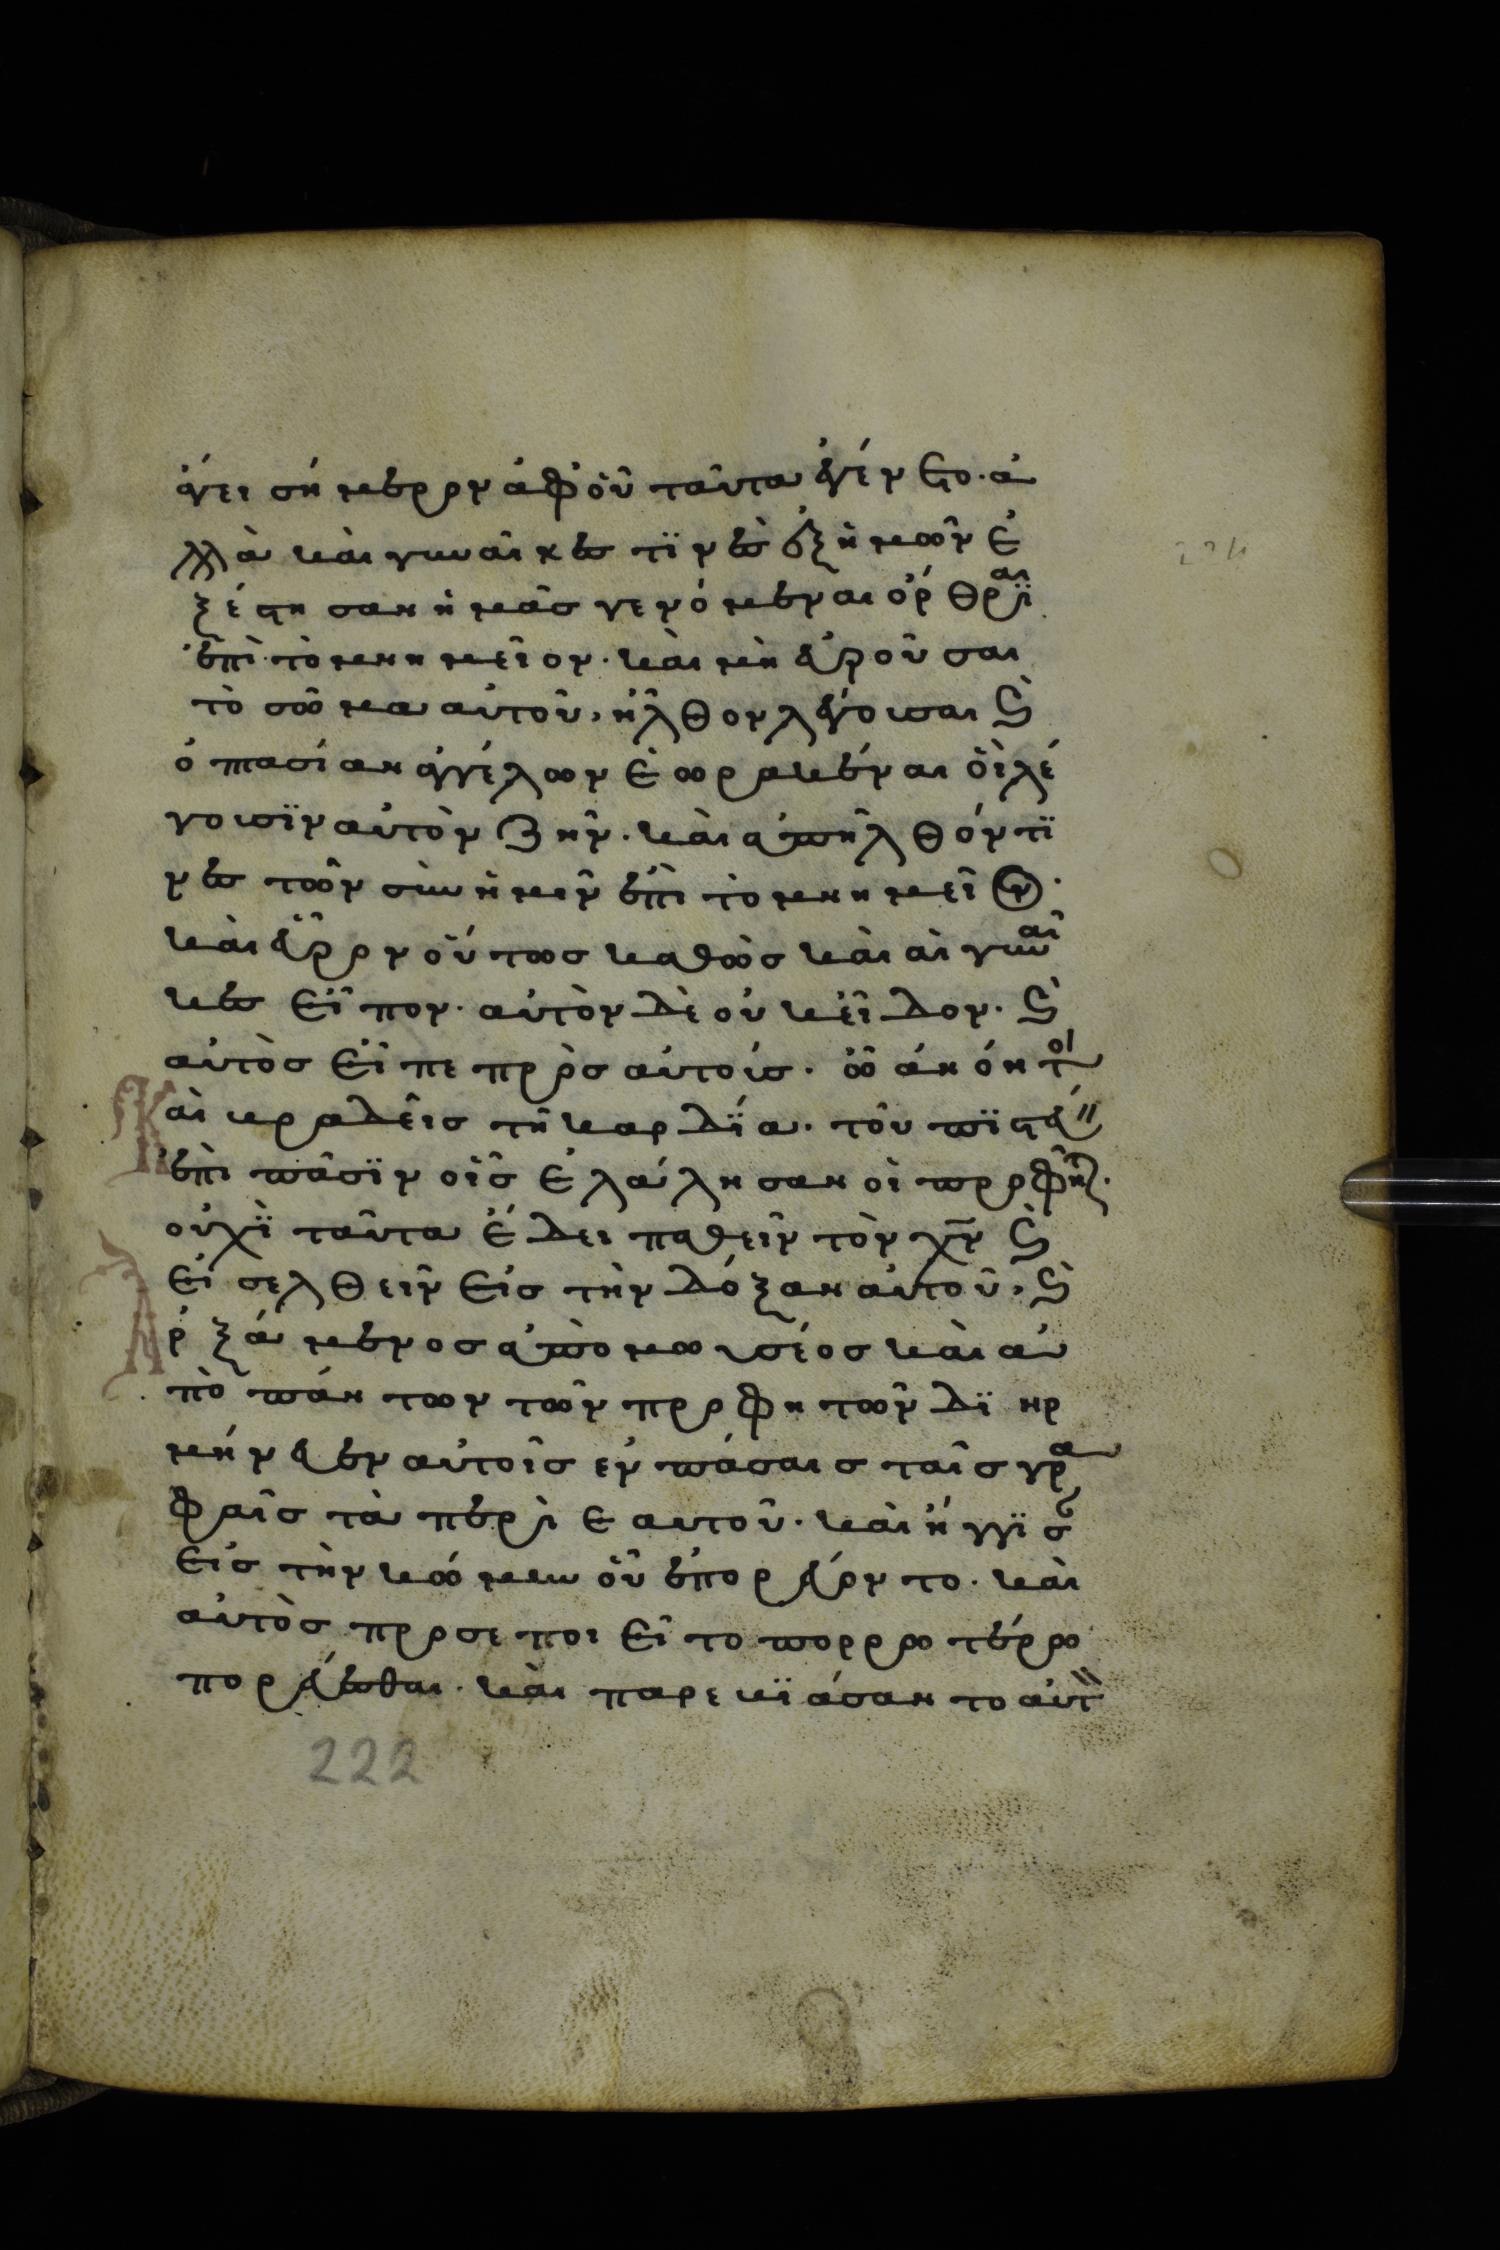 άγει σήμερον ἀφ οὗ ταῦτα ἐγένετο· ἀ
λλὰ καὶ γυναῖκες τϊνὲς ἐξ ἡμῶν ἐ
ξέστησαν ἡμᾶς γενόμεναι ὄρθριαι
ἐπὶ τὸ μνημεῖον· καὶ μὴ εὑροῦσαι
τὸ σῶμα αὐτοῦ, ἦλθον λέγουσαι ϗ
ὀπτασίαν ἀγγέλων ἑωρακέναι οἳ λέ
γουσϊν αὐτὸν ζῆν· καὶ ἀπῆλθόν τϊ
νες τῶν σὺν ἡμῖν ἐπὶ τὸ μνημεῖον·
καὶ εὗρον οὕτως καθὼς καὶ αἱ γυναῖ
κες εἶπον· αὐτὸν δὲ οὐκ εἶδον· ϗ
αὐτὸς εἶπε πρὸς αὐτούς· ὦ ἀνόητοι
καὶ βραδεῖς τῆ καρδΐα· τοῦ πϊστεύειν
ἐπὶ πᾶσϊν οἷς ἐλάλησαν οἱ προφῆται·
οὐχῒ ταῦτα ἔδει παθεῖν τὸν χν ϗ
εἰσελθεῖν εἰς τὴν δόξαν αὐτοῦ, ϗ
Ἀρξάμενος ἀπὸ μωυσέος καὶ ἀ
πὸ πάντων τῶν προφητῶν δϊηρ
μήνευεν αὐτοῖς ἐν πάσαις ταῖς γρα
φαῖς τὰ περὶ ἑαυτοῦ· καὶ ἤγγϊσαν
εἰς τὴν κώμην οὗ ἐπορεύοντο· καὶ
αὐτὸς προσεποιεῖτο πορρωτέρω
πορεύεσθαι· καὶ παρεβϊάσαντο αὐτὸν
222